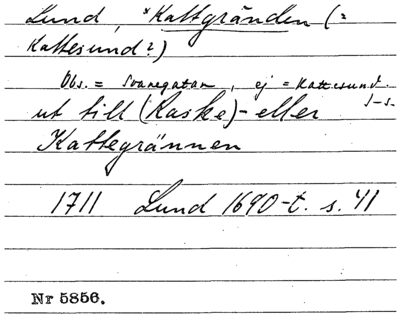 Lund, *Kattgränden (=
Kattesund?)
Obs. = Svanegatan, ej = Kattesund.
J-s.
ut till (Kaske)- eller
Kattegrännen
1711 Lund 1690-t. s. 41
Nr 5856.